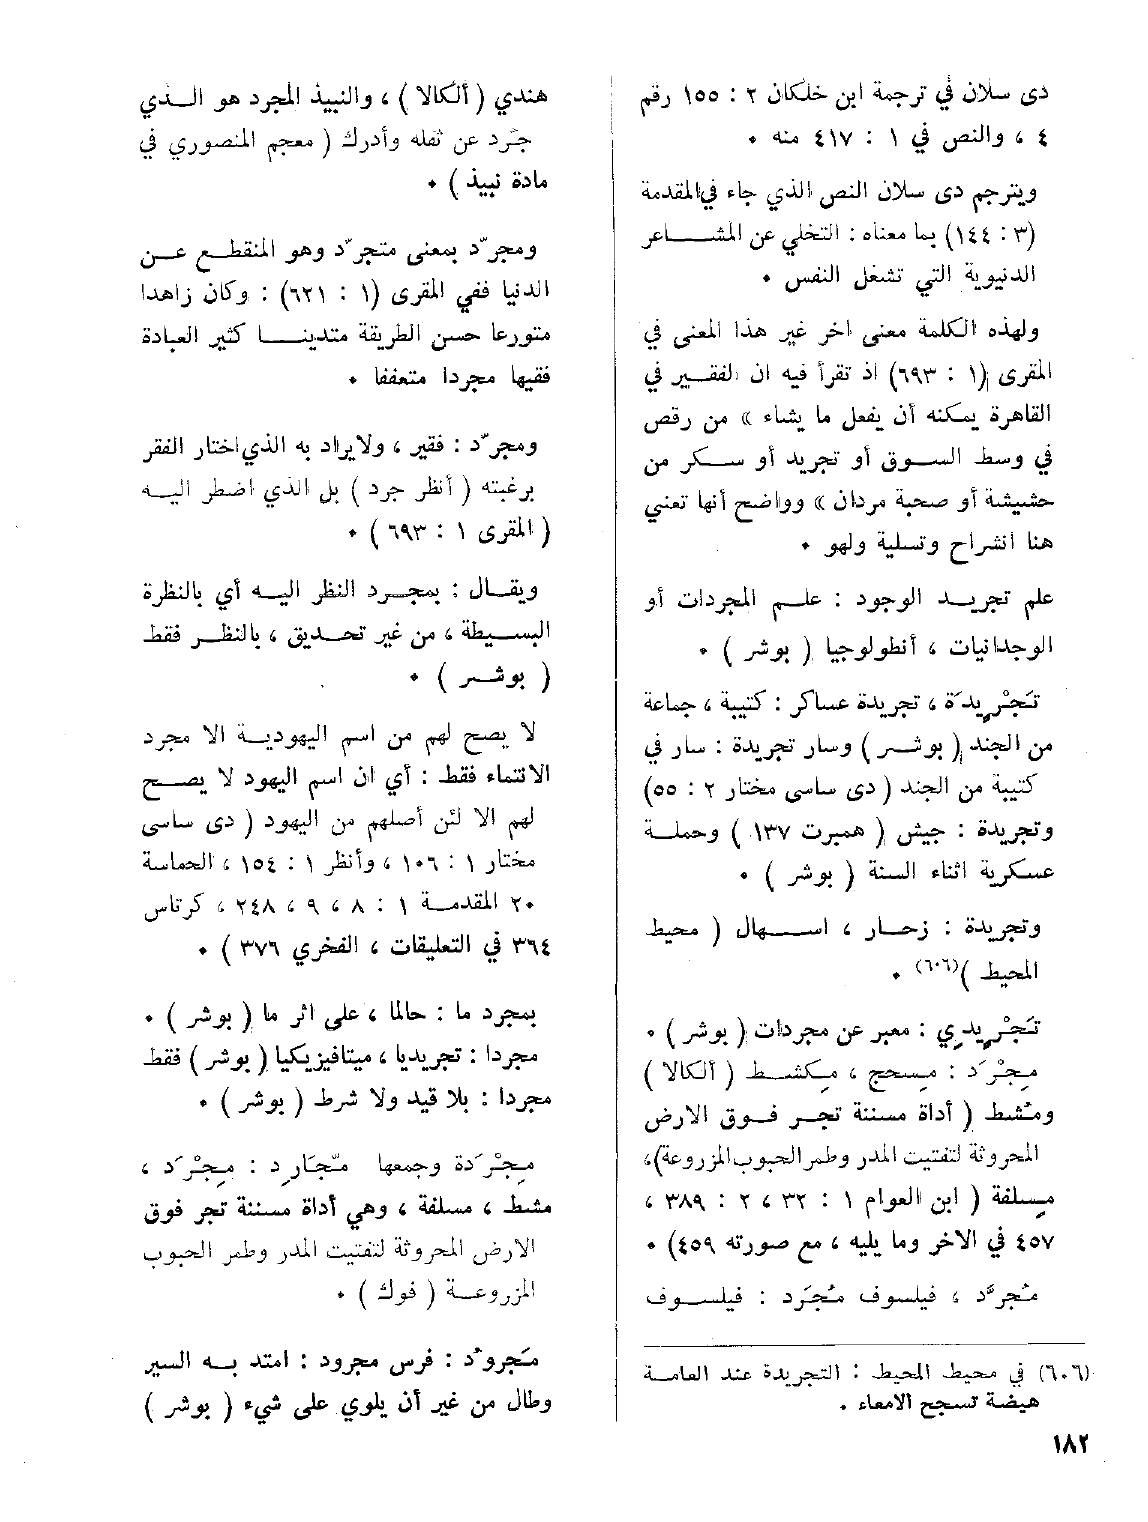 دى سلان في ترجمة ابن خلكان ٢ : ١٥٥ رقم
٤ ، والنص في ١ : ٤١٧ منه ٠
ويترجم دى سلان النص الذي جاء في المقدمة
(٣ : ١٤٤) بما معناه : التخلي عن المشــــاعر
الدنيوية التي تشغل النفس ٠
ولهذه الكلمة معنى اخر غير هذا المعنى في
المقرى (١ : ٦٩٣) اذ تقرأ فيه ان الفقـــير في
القاهرة يمكنه أن يفعل ما يشاء « من رقص
في وسط الســوق أو تجريد أو ســكر من
حشيشة أو صحبة مردان » وواضح أنها تعني
هنا انشراح وتسلية ولهو ٠
علم تجريــد الوجود : علــم المجردات أو
الوجدانيات ، أنطولوجيا ( بوشر ) ٠
تَجْرِيدَة ، تجريدة عساكر : كتيبة ، جماعة
من الجند ( بوشــر ) وسار تجريدة : سار في
كتيبة من الجند ( دى ساسى مختار ٢ : ٥٥)
وتجريدة : جيش ( همبرت ١٣٧ ) وحملــة
عسكرية اثناء السنة ( بوشر ) ٠
وتجريدة : زحــار ، اســـهال ( محيط
المحيط )(٦٠٦) ٠
تَجْرِيدِي : معبر عن مجردات ( بوشر ) ٠
مِجْرَد : مِسحج ، مِكشــط ( ألكالا )
ومُشط ( أداة مسننة تجــر فــوق الارض
المحروثة لتفتيت المدر وطمر الحبوب المزروعة)،
مِسلفة ( ابن العوام ١ : ٣٢ ، ٢ : ٣٨٩ ،
٤٥٧ في الاخر وما يليه ، مع صورته ٤٥٩) ٠
مُجرَّد ، فيلسوف مُجَرد : فيلــسوف
(٦٠٦) في محيط المحيط : التجريدة عند العامــة
هيضة تسحج الامعاء ٠
١٨٢
هندي ( ألكالا ) ، والنبيذ المجرد هو الــذي
جُرد عن ثفله وأدرك ( معجم المنصوري في
مادة نبيذ ) ٠
ومجرّد بمعنى متجرّد وهو المنقطــع عــن
الدنيا ففي المقرى (١ : ٦٢١) : وكان زاهدا
متورعا حسن الطريقة متدينــا كثير العبادة
فقيها مجردا متعففا ٠
ومجرّد : فقير ، ولايراد به الذي اختار الفقر
برغبته ( أنظر جرد ) بل الذي اضطر اليــه
( المقرى ١ : ٦٩٣ ) ٠
ويقــال : بمجــرد النظر اليــه أي بالنظرة
البســيطة ، من غير تحــديق ، بالنظــر فقط
( بوشــر ) ٠
لا يصح لهم من اسم اليهوديــة الا مجرد
الانتماء فقط : أي ان اسم اليهود لا يصــح
لهم الا لئن أصلهم من اليهود ( دى ساسى
مختار ١ : ١٠٦ ، وأنظر ١ : ١٥٤ ، الحماسة
٢٠ المقدمــة ١ : ٨ ، ٩ ، ٢٤٨ ، كرتاس
٣٦٤ في التعليقات ، الفخري ٣٧٦ ) ٠
بمجرد ما : حالما ، على اثر ما ( بوشر ) ٠
مجردا : تجريديا ، ميتافيزيكيا ( بوشر ) فقط
مجردا : بلا قيد ولا شرط ( بوشر ) ٠
مِجْرَدة وجمعها مَجَارِد : مِجْرَد ،
مشط ، مسلفة ، وهي أداة مسننة تجر فوق
الارض المحروثة لتفتيت المدر وطمر الحبوب
المزروعــة ( فوك ) ٠
مَجرود : فرس مجرود : امتد بــه السير
وطال من غير أن يلوي على شيء ( بوشر )